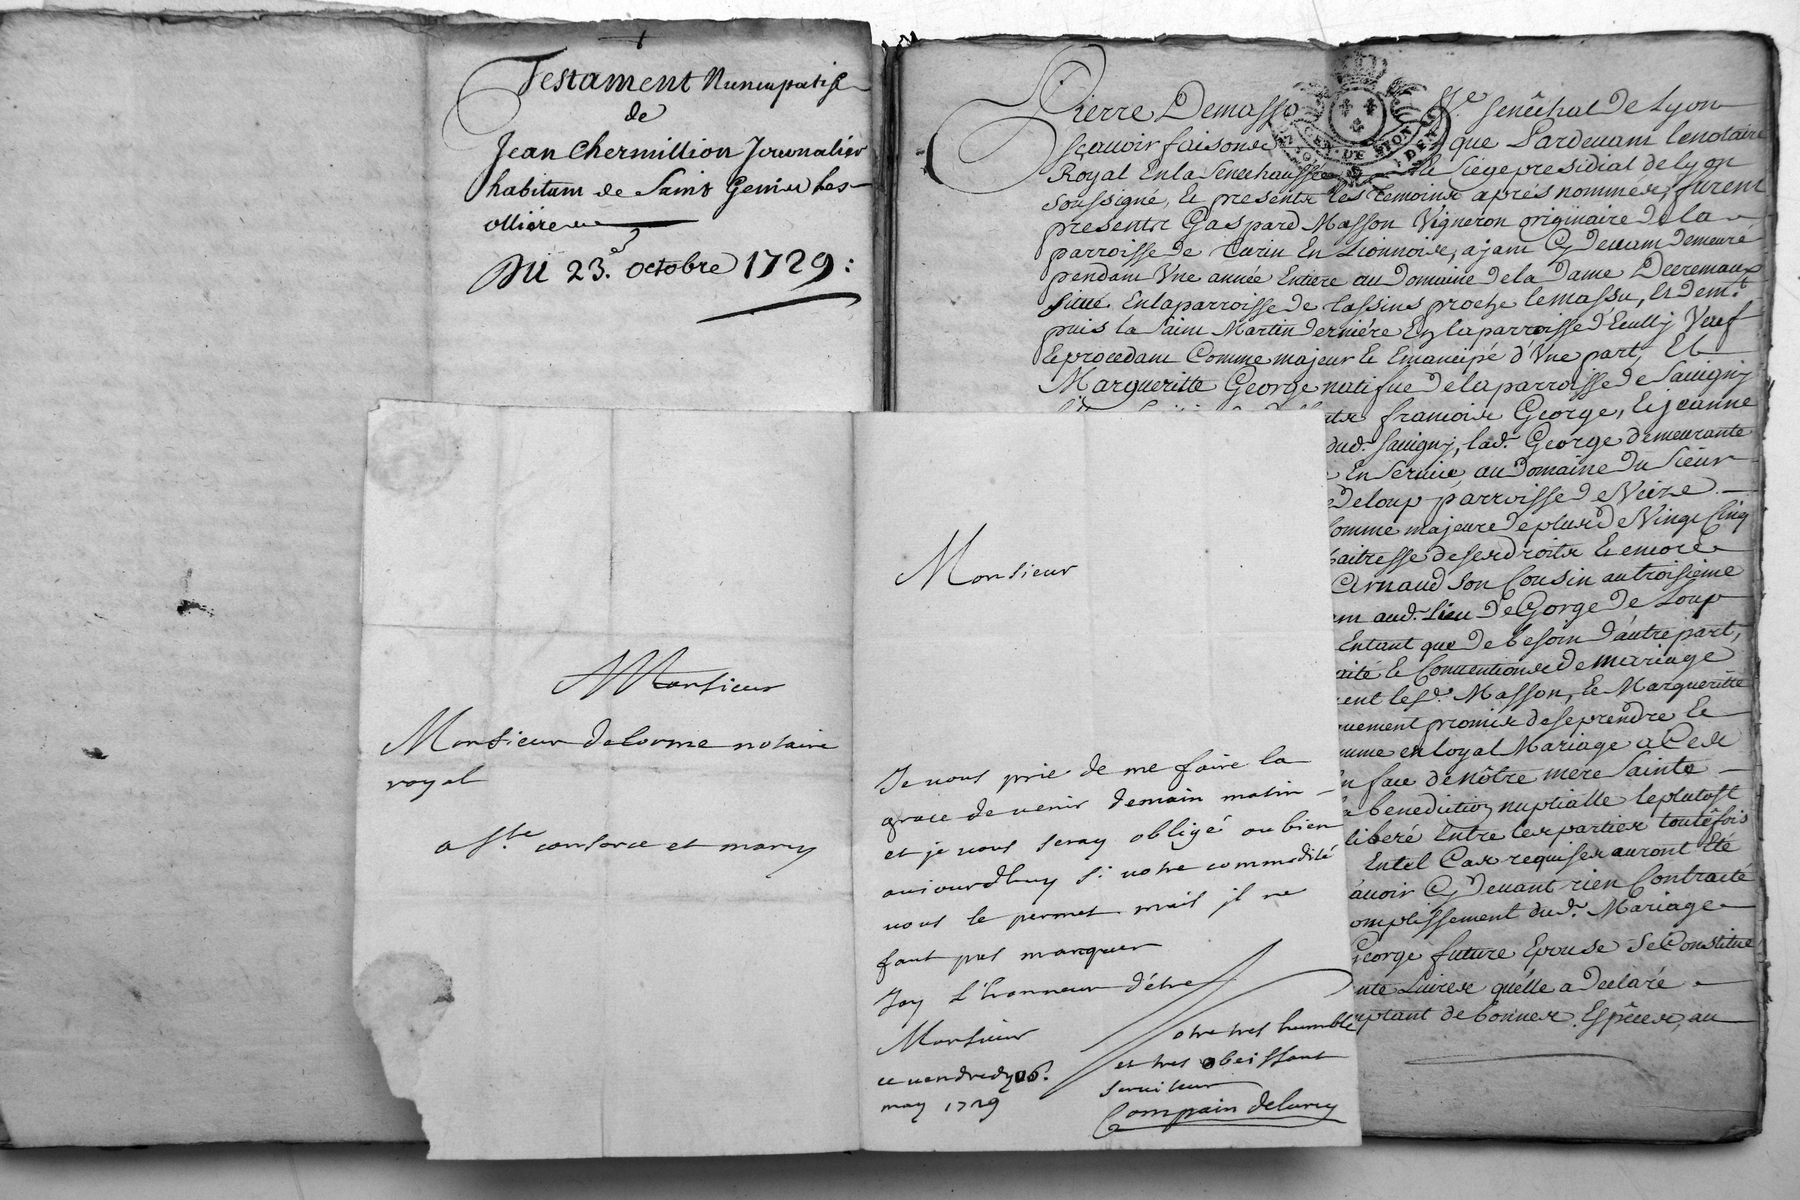 Testament Nuncupatif
de
Jean Chermillion Journalier
habitant de Saint Genis Les
ollieres
Du 23.e octobre 1729:
Pierre Demasso Sénêchal de Lyon
sçavoir faisons que Pardevant le notaire
Royal En la Senechaussée Siege presidial de Lyon
soussigné, Et presents les temoins aprés nommes, furent
presents Gaspard Masson Vigneron originaire de la
parroisse de Curiu En Lionnois, ajant Cy devant demeuré
pendant Une année Entiere au Domaine de la Dame
situé En la parroisse de tassins proche le massu, Et
puis la saint Martin derniére En la parroisse d'Ecully Veuf
Et procedant Comme majeur Et Emancipé d'Une part, Et
Margueritte George natifue de la parroisse de Sauigny
francois George, Et Jeanne
dud. Sauigny, lad. George demeurante
En Seruice, au Domaine du Sieur
de loup parroisse de Veize
Comme majeure de plus de Vingt Cinq
maitresse de ses droits Et encore
Arnaud son Cousin au troisieme
aud. Lieu de Gorge de Loup
Entant que de besoin d'autre part,
Et Conuentions de mariage
lesd. Masson, Et Margueritte
promis de se prendre Et
en loyal Mariage a Ces
En face de nôtre mere Sainte
la benediction nuptialle le plutost
liberé Entre les parties toutefois
En tel Cas requises auront Eté
avoir Cy devant rien Contracté
accomplissement dud. Mariage
George future Epouse Se Constitue
Liures qu'elle a Declaré
comptant de bonnes Espéces, au
Monsieur
Monsieur delorme notaire
royal
a Ste consorce et marcy
Monsieur
Je vous prie de me faire la
grace de venir demain matin
et je vous seray obligé ou bien
aujourdhuy si votre commodité
vous le permet mais il ne
faut pas manquer
Jay L'honneur d'étre
Monsieur
Votre tres humble
et tres obeissant
seruiteur
ce vendredy 06.
may 1729
Compain delurcy